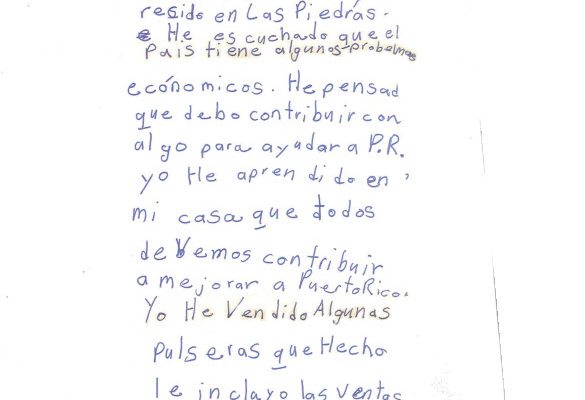 resido en Las Piedras.
e He escuchado que el
Pais tiene algunos probelmas
ecónomicos. He pensad
que debo contribuir con
algo para ayudar a P.R.
yo He aprendido en
mi casa que todos
deVemos contribuir
a mejorar a Puerto Rico.
Yo He Vendido Algunas
pulseras que Hecho
le inclayo las ventas